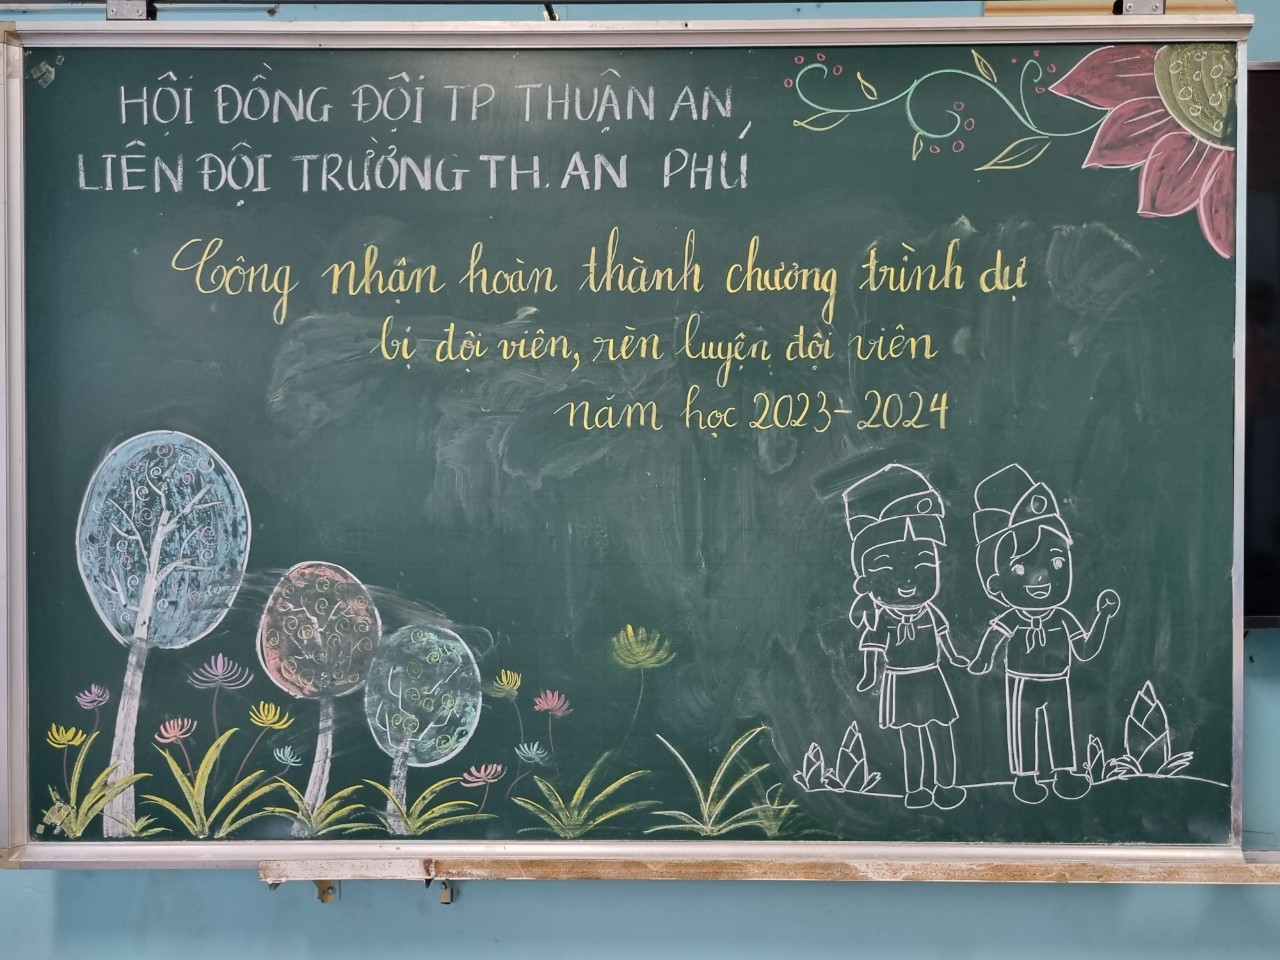 HỘI ĐỒNG ĐỘI TP THUẬN AN
LIÊN ĐỘI TRƯỜNG TH. AN PHÚ
Công nhận hoàn thành chương trình dự
bị đội viên, rèn luyện đội viên
năm học 2023-2024